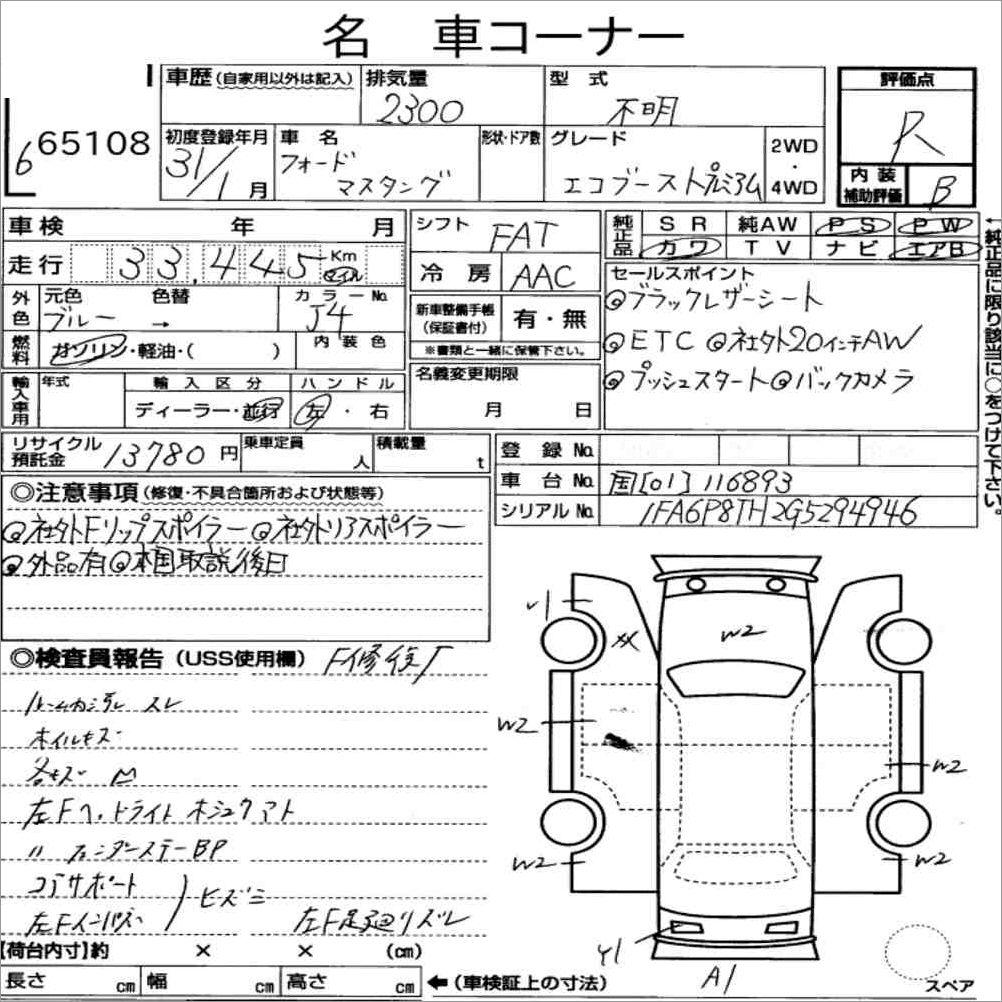 名 車コーナー
車歴(自家用以外は記入) 排気量 2300 型式 不明 評価点 R
6 65108
初度登録年月 31/1月 車名 フォード マスタング 形状・ドア数 グレード エコブーストプレミアム 2WD・4WD 内装補助評価 B
車検 年 月 シフト FAT 純正品 SR 純AW PS PW
カワ TV ナビ エアB
走行 33,445 Km マイル 冷房 AAC
セールスポイント
外色 元色 ブルー → 色替 カラーNo. J4 内装色
新車整備手帳(保証書付) 有・無
※書類と一緒に保管下さい。
◎ブラックレザーシート
◎ETC ◎社外20インチAW
◎プッシュスタート◎バックカメラ
燃料 ガソリン・軽油・( )
輸入車用 年式 輸入区分 ディーラー・並行 ハンドル 左・右
名義変更期限 月 日
←純正品に限り該当に○をつけて下さい。
リサイクル預託金 13780円 乗車定員 人 積載量 t
登録No.
車台No. 国[01]116893
シリアルNo. 1FA6P8TH2G5294946
◎注意事項(修復・不具合箇所および状態等)
◎社外Fリップスポイラー ◎社外リアスポイラー
◎外品有◎本国取説後日
◎検査員報告(USS使用欄) F修復「
ルーム内汚レ スレ
ホイルキズ
各キズ M
左Fヘッドライトホシュウアト
〃 フェンダーステーBP
コアサポート
左Fインパネ ) ヒズミ
左F足廻りズレ
Y1
XX
W2
W2
W2
W2
W2
Y1
A1
スペア
【荷台内寸】約 × × (cm)
長さ cm 幅 cm 高さ cm ←(車検証上の寸法)